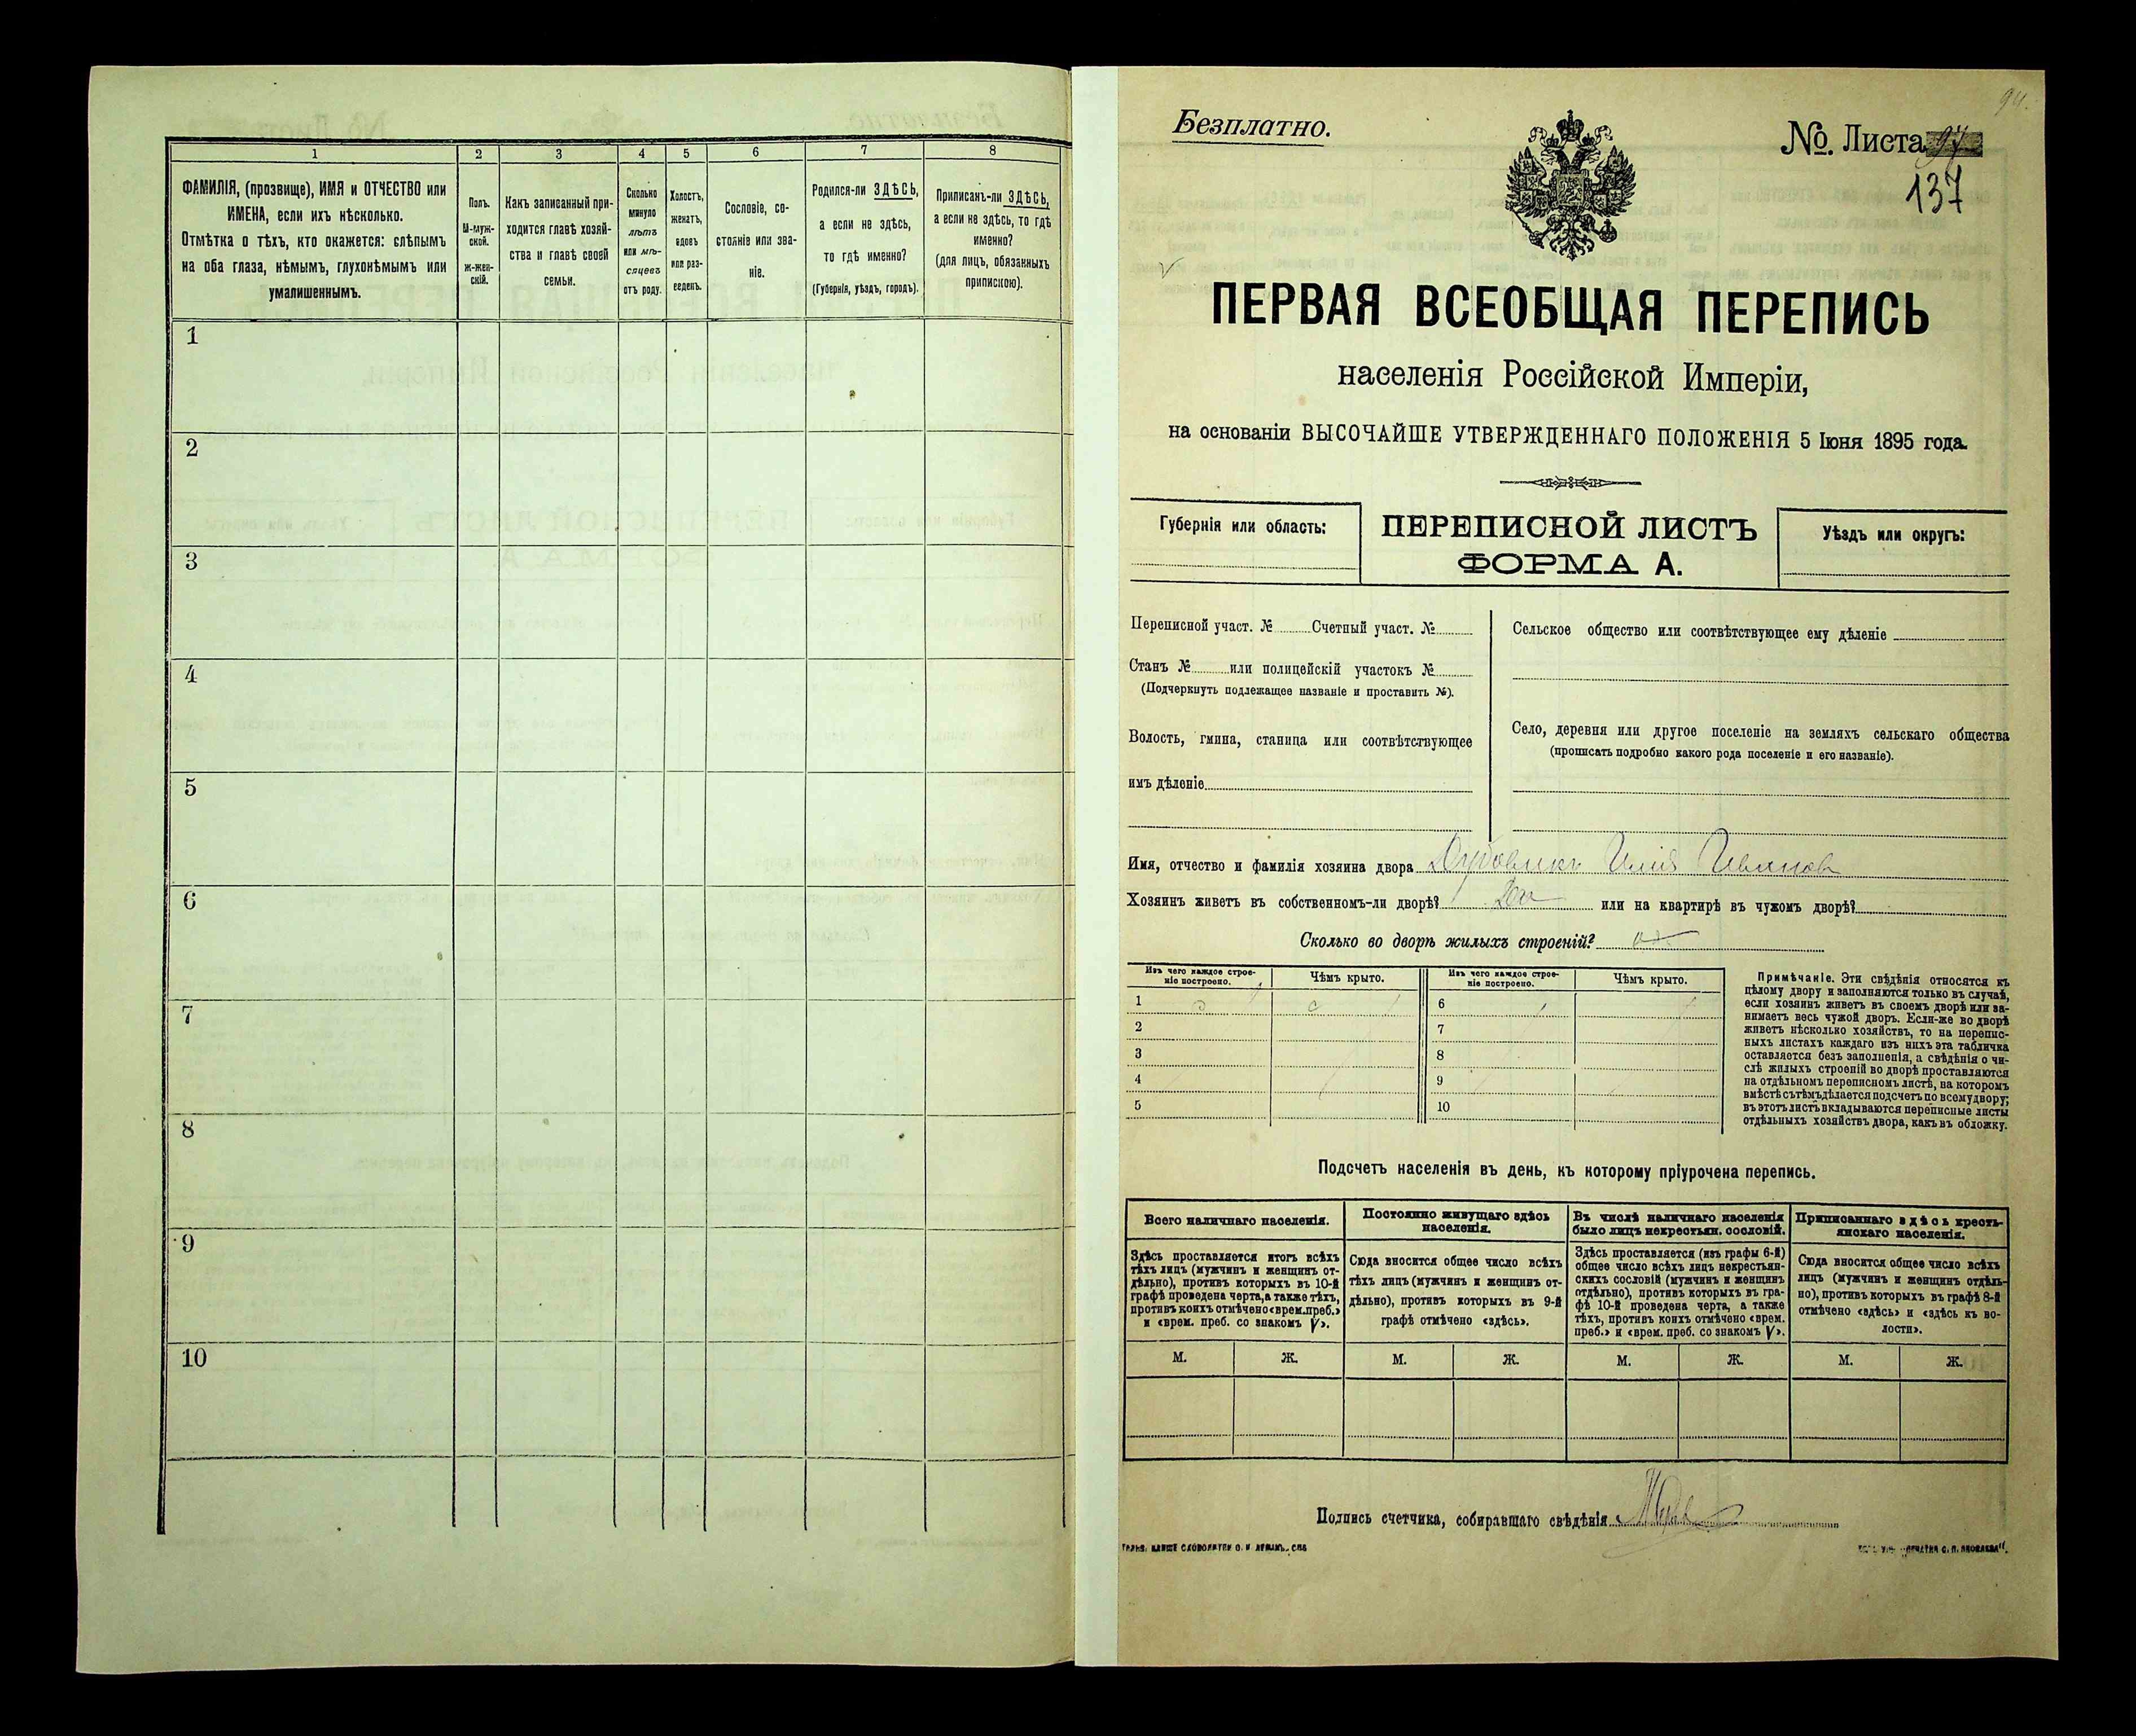 1 2 3 4 5 6 7 8
ФАМИЛІЯ, (прозвище), ИМЯ и ОТЧЕСТВО или
ИМЕНА, если ихъ нѣсколько.
Отмѣтка о тѣхъ, кто окажется: слѣпымъ
на оба глаза, нѣмымъ, глухонѣмымъ или
умалишеннымъ.
Полъ.
М-муж-
ской.
Ж-жен-
скій.
Какъ записанный при-
ходится главѣ хозяй-
ства и главѣ своей
семьи.
Сколько
минуло
лѣтъ
или мѣ-
сяцевъ
отъ роду.
Холостъ,
женатъ,
вдовъ
или раз-
веденъ.
Сословіе, со-
стояніе или зва-
ніе.
Родился-ли ЗДѢСЬ,
а если не здѣсь,
то гдѣ именно?
(Губернія, уѣздъ, городъ).
Приписанъ-ли ЗДѢСЬ,
а если не здѣсь, то гдѣ
именно?
(для лицъ, обязанныхъ
припискою).
1
2
3
4
5
6
7
8
9
10
94.
Безплатно.
№. Листа 97
137
ПЕРВАЯ ВСЕОБЩАЯ ПЕРЕПИСЬ
населенія Россійской Имперіи,
на основаніи ВЫСОЧАЙШЕ УТВЕРЖДЕННАГО ПОЛОЖЕНІЯ 5 Іюня 1895 года.
Губернія или область:
ПЕРЕПИСНОЙ ЛИСТЪ
ФОРМА А.
Уѣздъ или округъ:
Переписной участ. № Счетный участ. №
Станъ № или полицейскій участокъ №
(Подчеркнуть подлежащее названіе и проставить №).
Волость, гмина, станица или соотвѣтствующее
имъ дѣленіе
Сельское общество или соотвѣтствующее ему дѣленіе
Село, деревня или другое поселеніе на земляхъ сельскаго общества
(прописать подробно какого рода поселеніе и его названіе).
Имя, отчество и фамилія хозяина двора Дубовикъ Илія Ивановъ
Хозяинъ живетъ въ собственномъ-ли дворѣ? Да или на квартирѣ въ чужомъ дворѣ?
Сколько во дворѣ жилыхъ строеній?
Изъ чего каждое строе-
ніе построено.
Чѣмъ крыто.
Изъ чего каждое строе-
ніе построено.
Чѣмъ крыто.
1 д с 6
2 7
3 8
4 9
5 10
Примѣчаніе. Эти свѣдѣнія относятся къ
цѣлому двору и заполняются только въ случаѣ,
если хозяинъ живетъ въ своемъ дворѣ или за-
нимаетъ весь чужой дворъ. Если-же во дворѣ
живетъ нѣсколько хозяйствъ, то на перепис-
ныхъ листахъ каждаго изъ нихъ эта табличка
оставляется безъ заполненія, а свѣдѣнія о чи-
слѣ жилыхъ строеній во дворѣ проставляются
на отдѣльномъ переписномъ листѣ, на которомъ
вмѣстѣ съ тѣмъ дѣлается подсчетъ по всему двору;
въ этотъ листъ вкладываются переписные листы
отдѣльныхъ хозяйствъ двора, какъ въ обложку.
Подсчетъ населенія въ день, къ которому пріурочена перепись.
Всего наличнаго населенія.
Здѣсь проставляется итогъ всѣхъ
тѣхъ лицъ (мужчинъ и женщинъ от-
дѣльно), противъ которыхъ въ 10-й
графѣ проведена черта, а также тѣхъ,
противъ коихъ отмѣчено «врем. преб.»
и «врем. преб. со знакомъ V».
Постоянно живущаго здѣсь
населенія.
Сюда вносится общее число всѣхъ
тѣхъ лицъ (мужчинъ и женщинъ от-
дѣльно), противъ которыхъ въ 9-й
графѣ отмѣчено «здѣсь».
Въ числѣ наличнаго населенія
было лицъ некрестьян. сословій.
Здѣсь проставляется (изъ графы 6-й)
общее число всѣхъ лицъ некрестьян-
скихъ сословій (мужчинъ и женщинъ
отдѣльно), противъ которыхъ въ гра-
фѣ 10-й проведена черта, а также
тѣхъ, противъ коихъ отмѣчено «врем.
преб.» и «врем. преб. со знакомъ V».
Приписаннаго здѣсь кресть-
янскаго населенія.
Сюда вносится общее число всѣхъ
лицъ (мужчинъ и женщинъ отдѣль-
но), противъ которыхъ въ графѣ 8-й
отмѣчено «здѣсь» и «здѣсь къ во-
лости».
М. Ж. М. Ж. М. Ж. М. Ж.
Подпись счетчика, собиравшаго свѣдѣнія